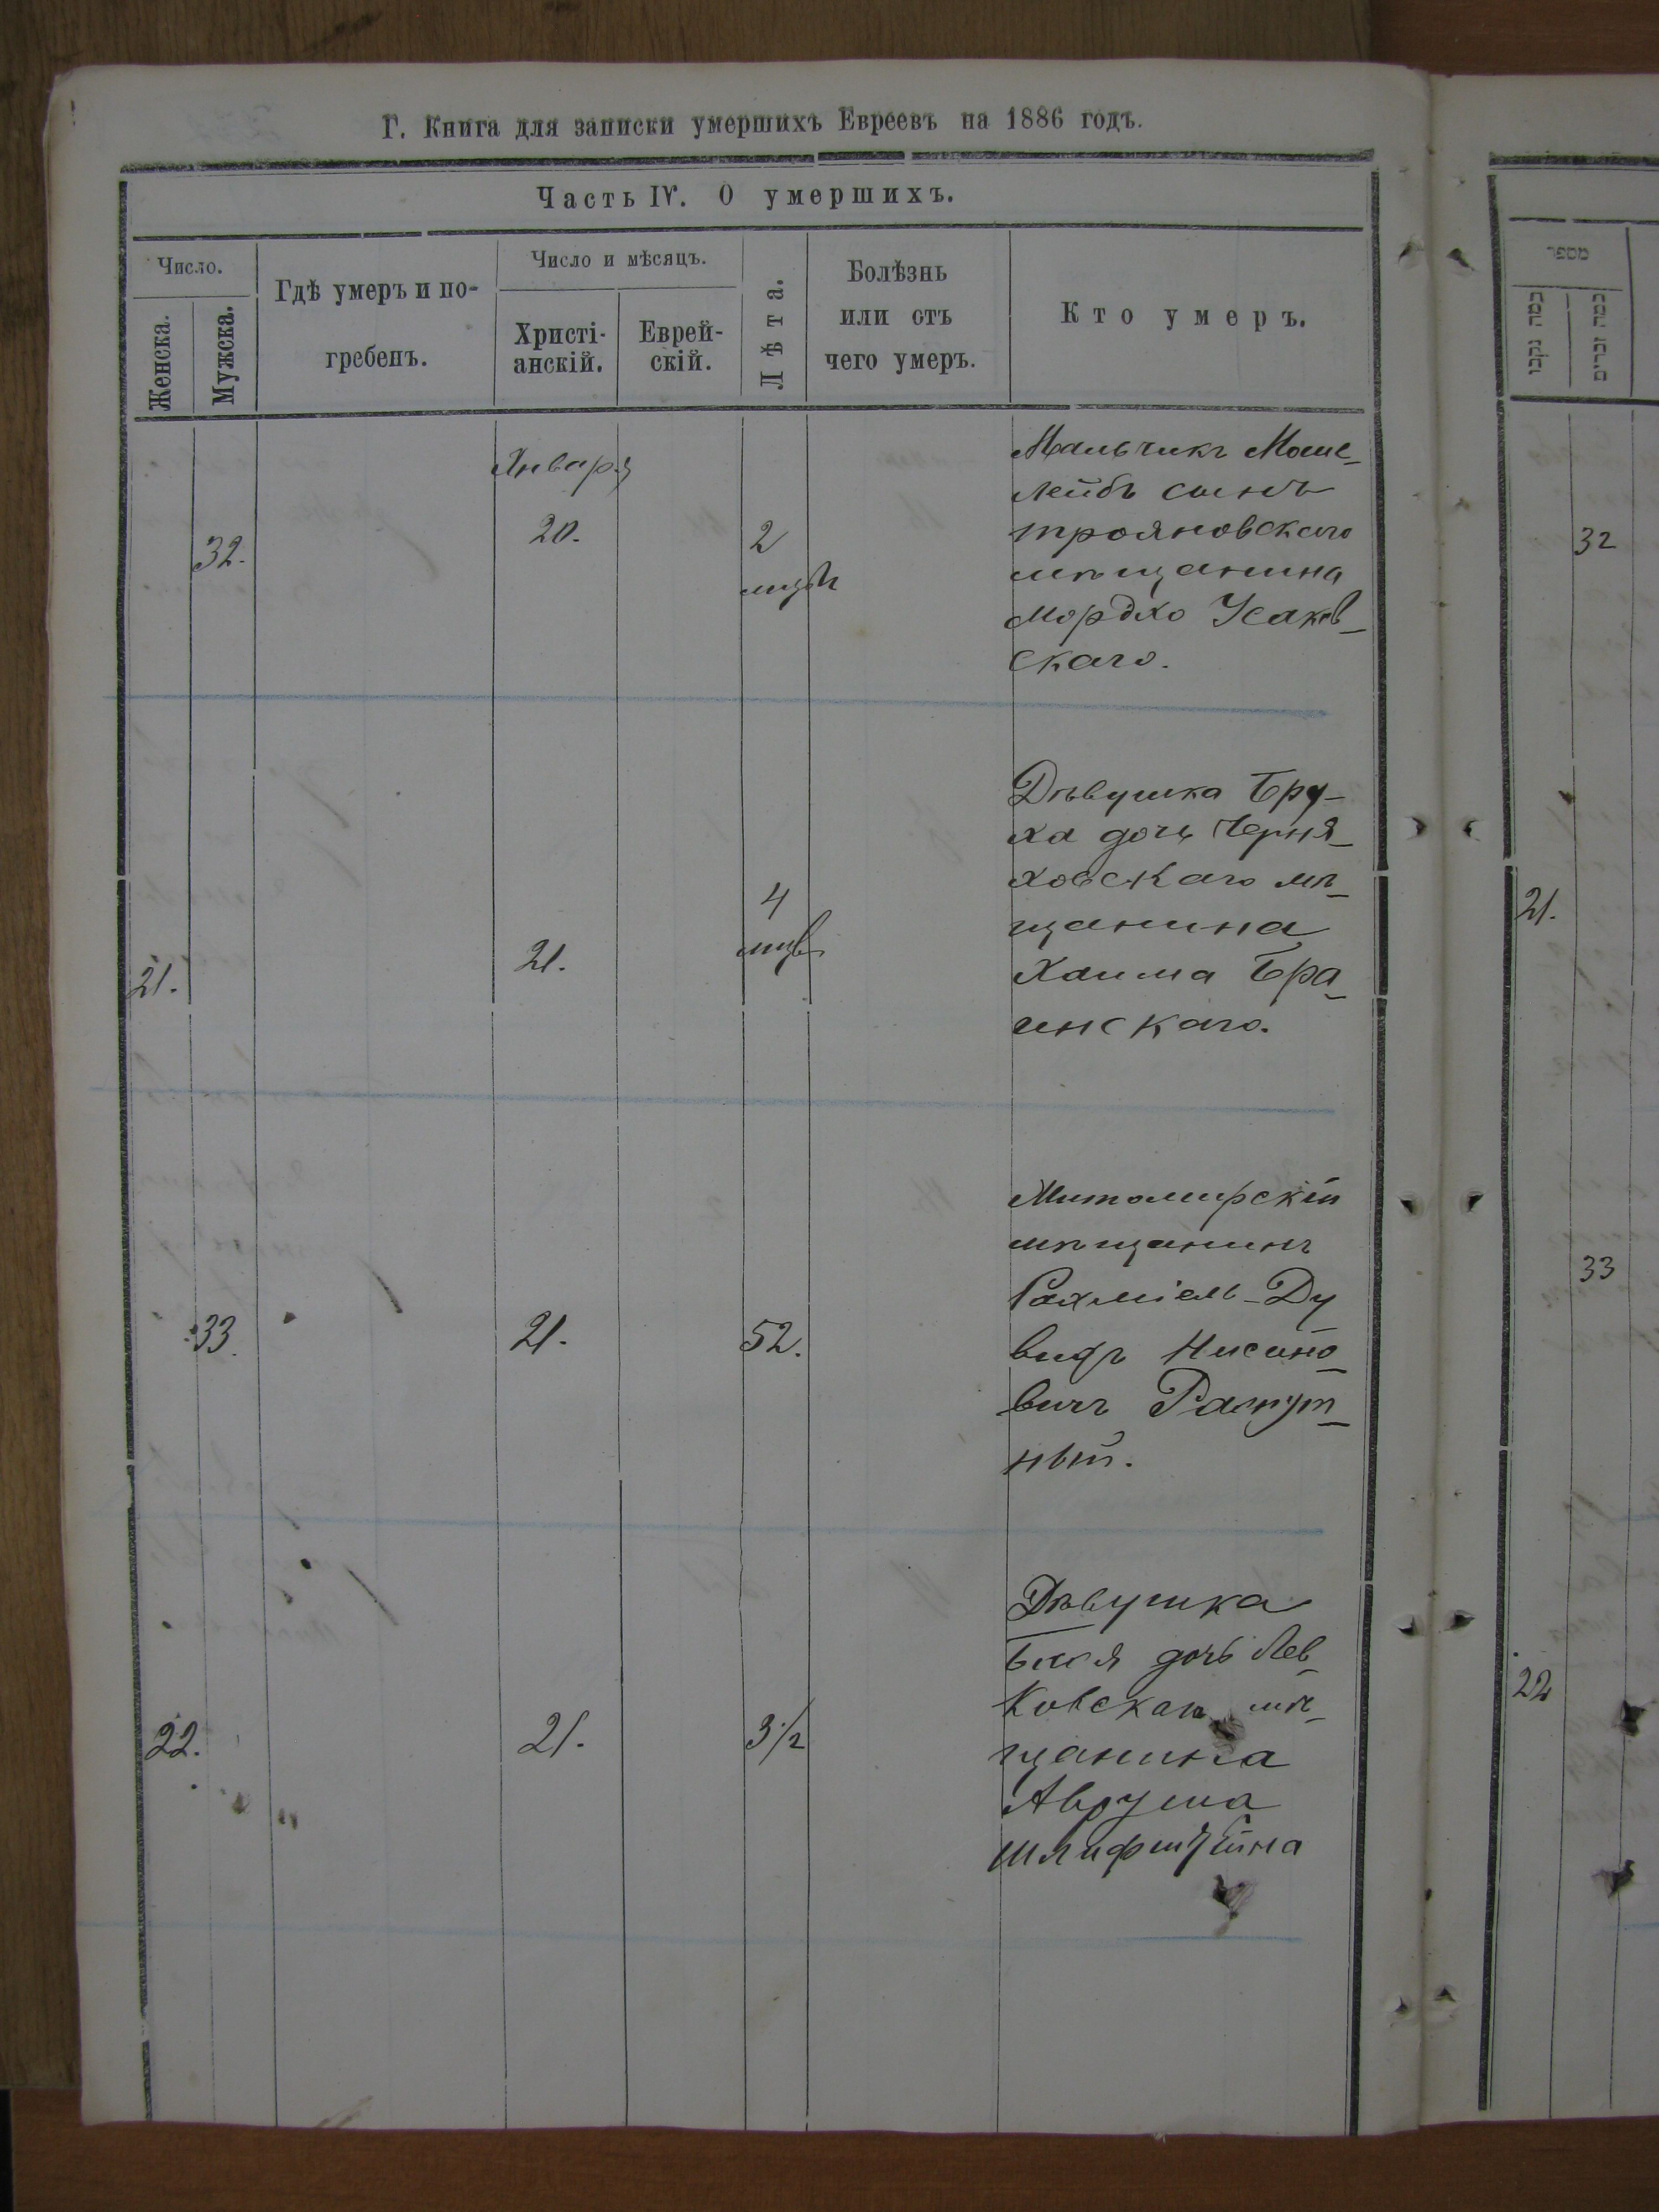 Г. Книга для записки умершихъ Евреевъ на 1886 годъ.
Часть IV. О умершихъ.
Число.
Женска.
Мужска.
Гдѣ умеръ и по-
гребенъ.
Число и мѣсяцъ.
Христі-
анскій.
Еврей-
скій.
Лѣта.
Болѣзнь
или отъ
чего умеръ.
Кто умеръ.
Января
32.
20.
2
Мальчикъ Моше-
Лейбъ сынъ
трояновскаго
мѣщанина
Мордко Усаков-
скаго.
21.
21.
4
Дѣвушка Бру-
ха дочь Черня-
ховскаго мѣ-
щанина
Хаима Бра-
инскаго.
33.
21.
52.
Житомирскій
мѣщанинъ
Рахміель-Ду
видъ Нисано-
вичъ Распут-
ный.
22.
21.
3 1/2
Дѣвушка
дочь Лев-
ковскаго мѣ-
щанина
Аврума
מספר
כמה נקבו
כמה זכרים
32
21.
33
22